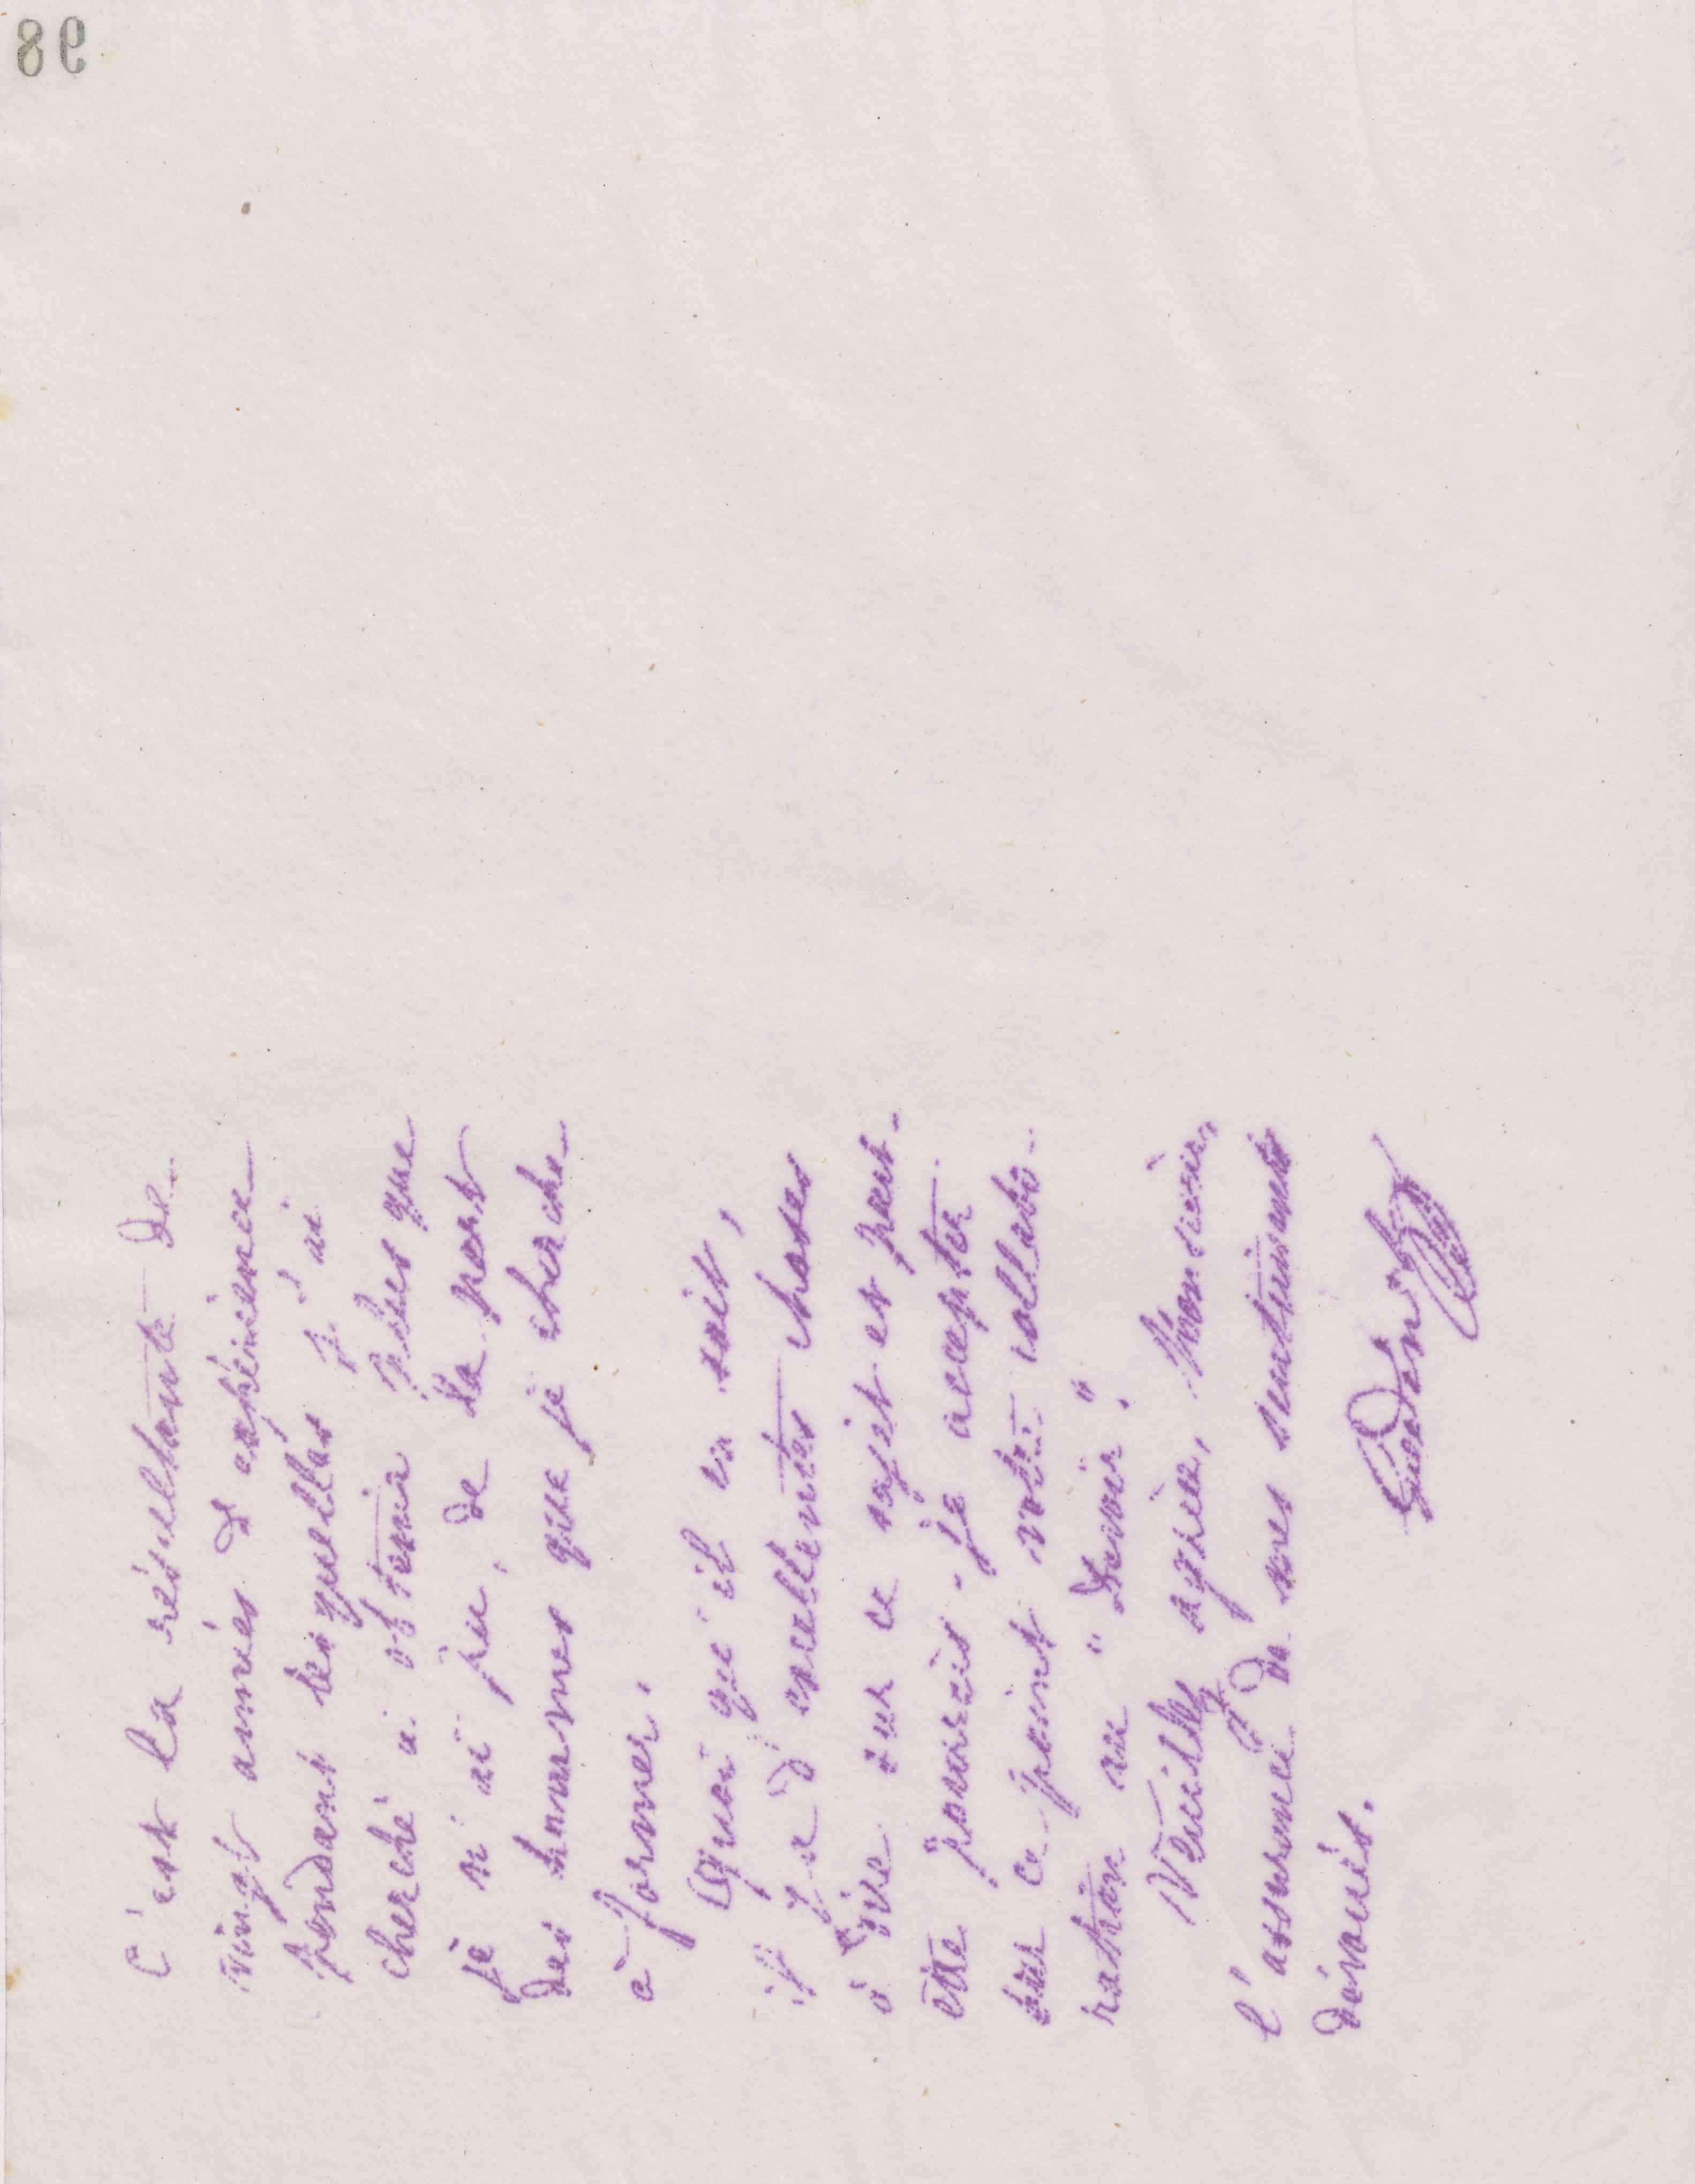 98
C'est la résultante de
vingt années d'expérience
pendant lesquelles j'ai
cherché à obtenir plus que
je n'ai pu, de la part
des hommes que je cherche
à former.
Quoi qu'il en soit,
il y a d'excellentes choses
à dire sur ce sujet et peut-
être pourrais-je accepter
sur ce point votre collabo-
ration au "Devoir".
Veuillez agréer, Monsieur,
l'assurance de mes sentiments
dévoués.
Godin